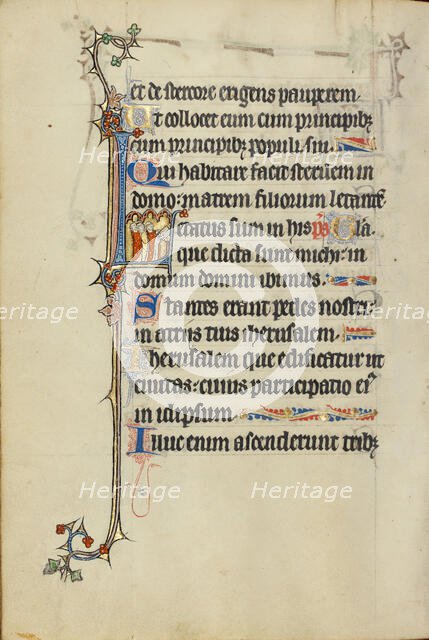 et de stercore erigens pauperem.
Ut collocet eum cum principibȝ
cum principibȝ populi sui.
Qui habitare facit sterilem in
domo: matrem filiorum letantē
Letatus sum in his p̄s Glā.
que dicta sunt michi: in
domum domini ibimus.
Stantes erant pedes nostri:
in atriis tuis iherusalem.
Iherusalem que edificatur ut
ciuitas: cuius participatio eiꝰ
in idipsum.
Illuc enim ascenderunt tribꝫ
Heritage
Heritage
Heritage
Heritage
Heritage
Heritage
Heritage